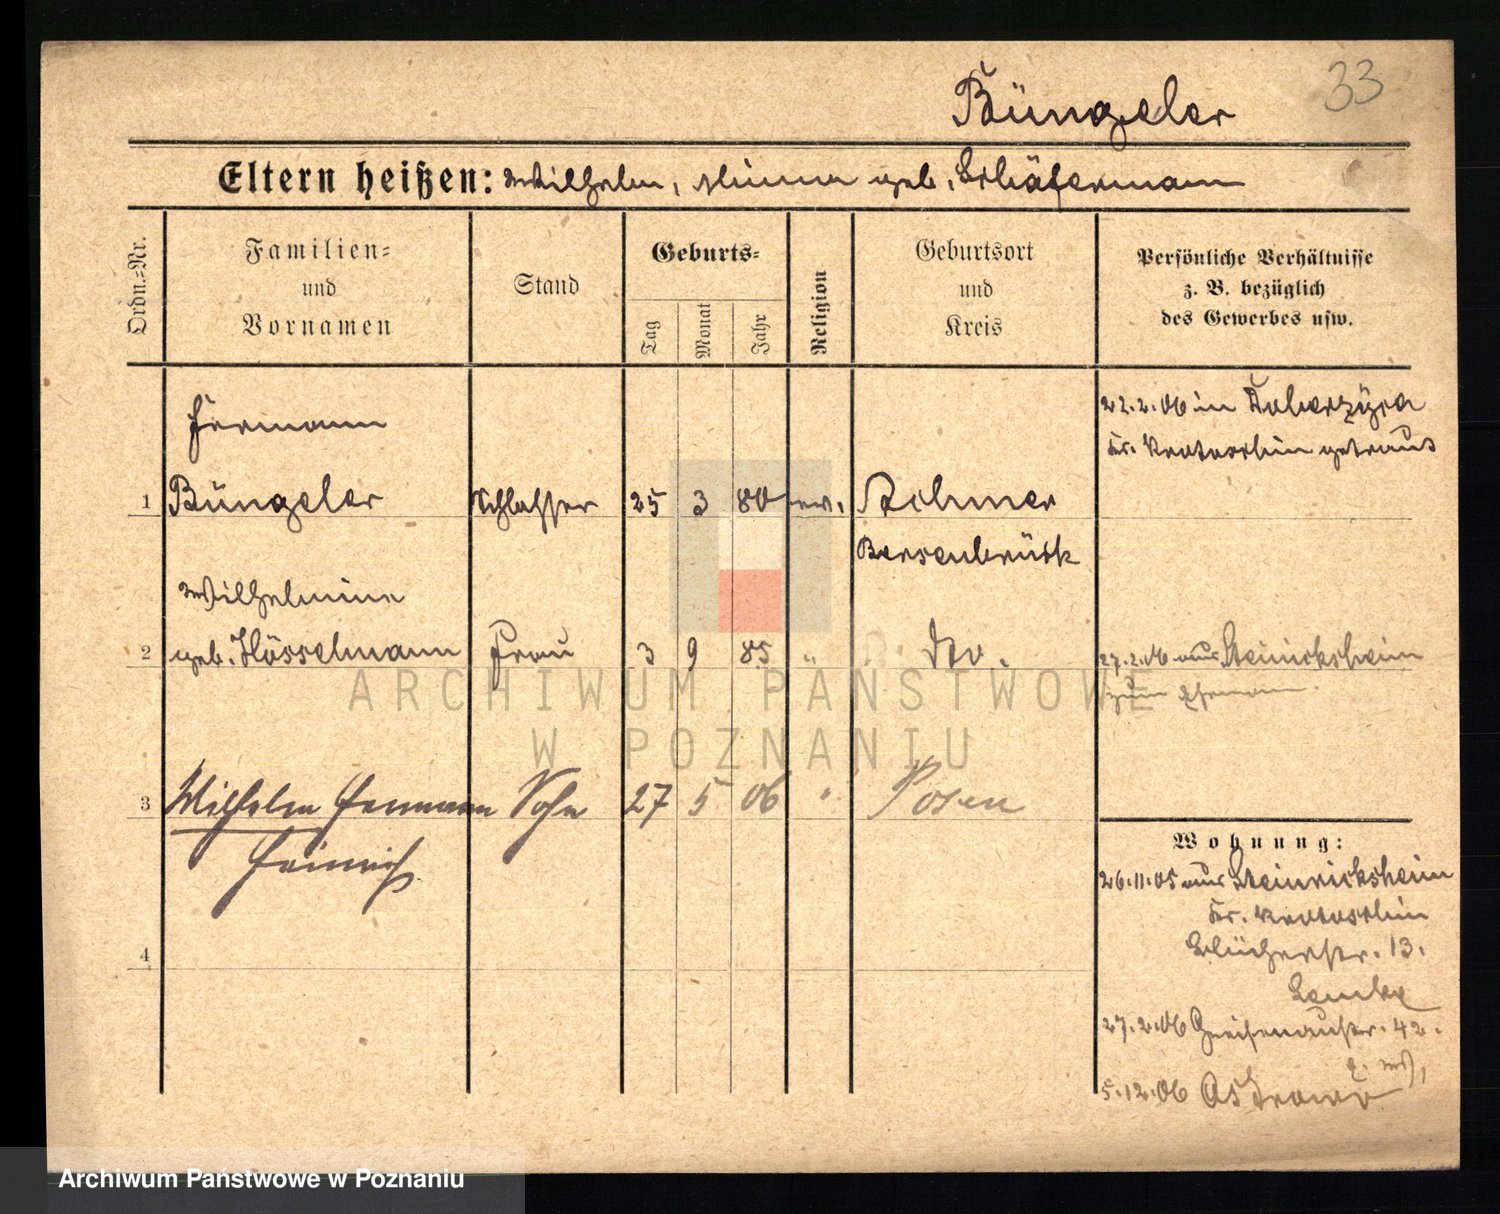 33
Büngeler
Eltern heißen: Wilhelm, Minna geb. Schäfermann
Ordn.-Nr.
Familien-
und
Vornamen
Stand
Geburts-
Tag
Monat
Jahr
Religion
Geburtsort
und
Kreis
Persönliche Verhältnisse
z. B. bezüglich
des Gewerbes usw.
Hermann
22.2.06 in Dobrzyca
Kr. Krotoschin getraut
1 Büngeler Schlosser 25 3 80 ev. Achmer
Bersenbrück
Wilhelmine
2 geb. Hösselmann Frau 3 9 85 " Do. 27.2.06 aus Steinicksheim
zum Ehemann.
3 Wilhelm Hermann Sohn 27 5 06 " Posen
Heinrich
4
Wohnung:
26.11.05 aus Steinicksheim
Kr. Krotoschin
Blücherstr. 13.
27.2.06 Gneisenaustr. 42.
5.12.06 Ostrowo
ARCHIWUM PAŃSTWOWE
W POZNANIU
Archiwum Państwowe w Poznaniu